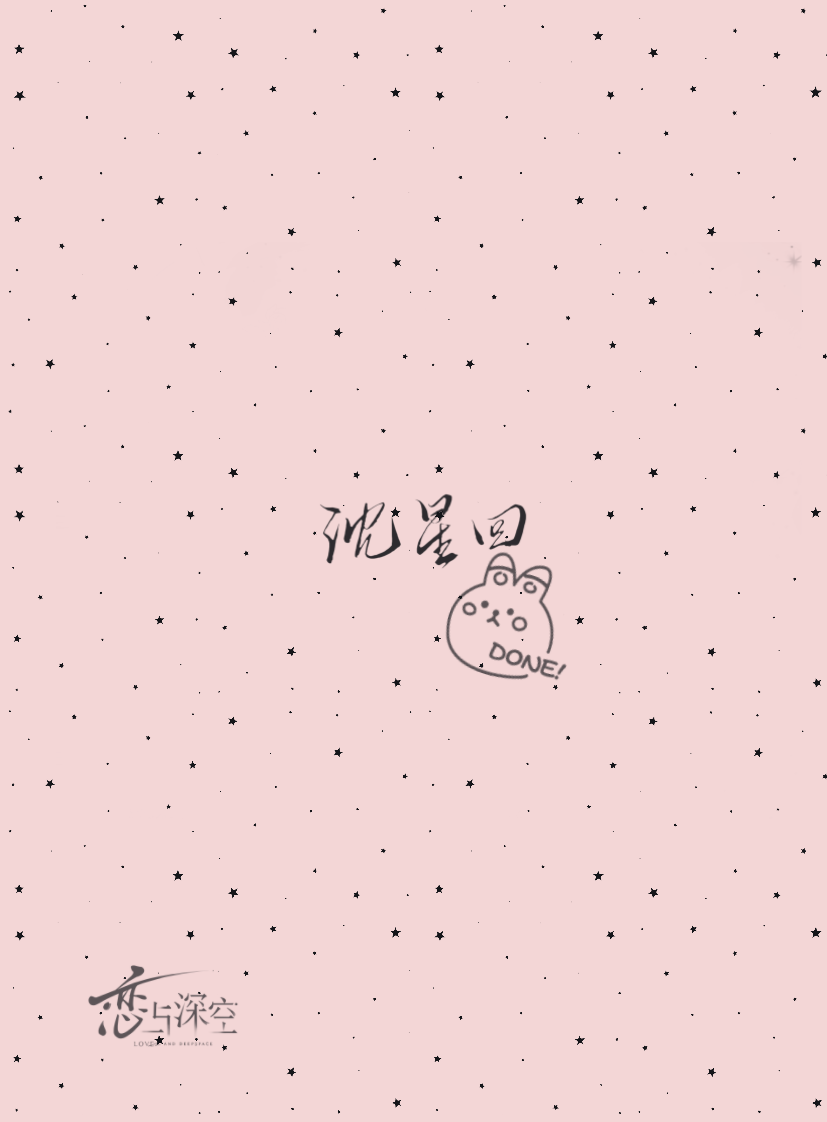 沈星回
DONE!
恋与深空
LOVE AND DEEPSPACE